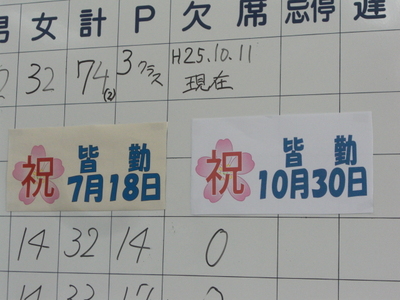 男 女 計 P 欠 席 忌停 遅
2 32 74(2) 3クラス H25.10.11
現在
祝 皆勤 7月18日
祝 皆勤 10月30日
14 32 14 0